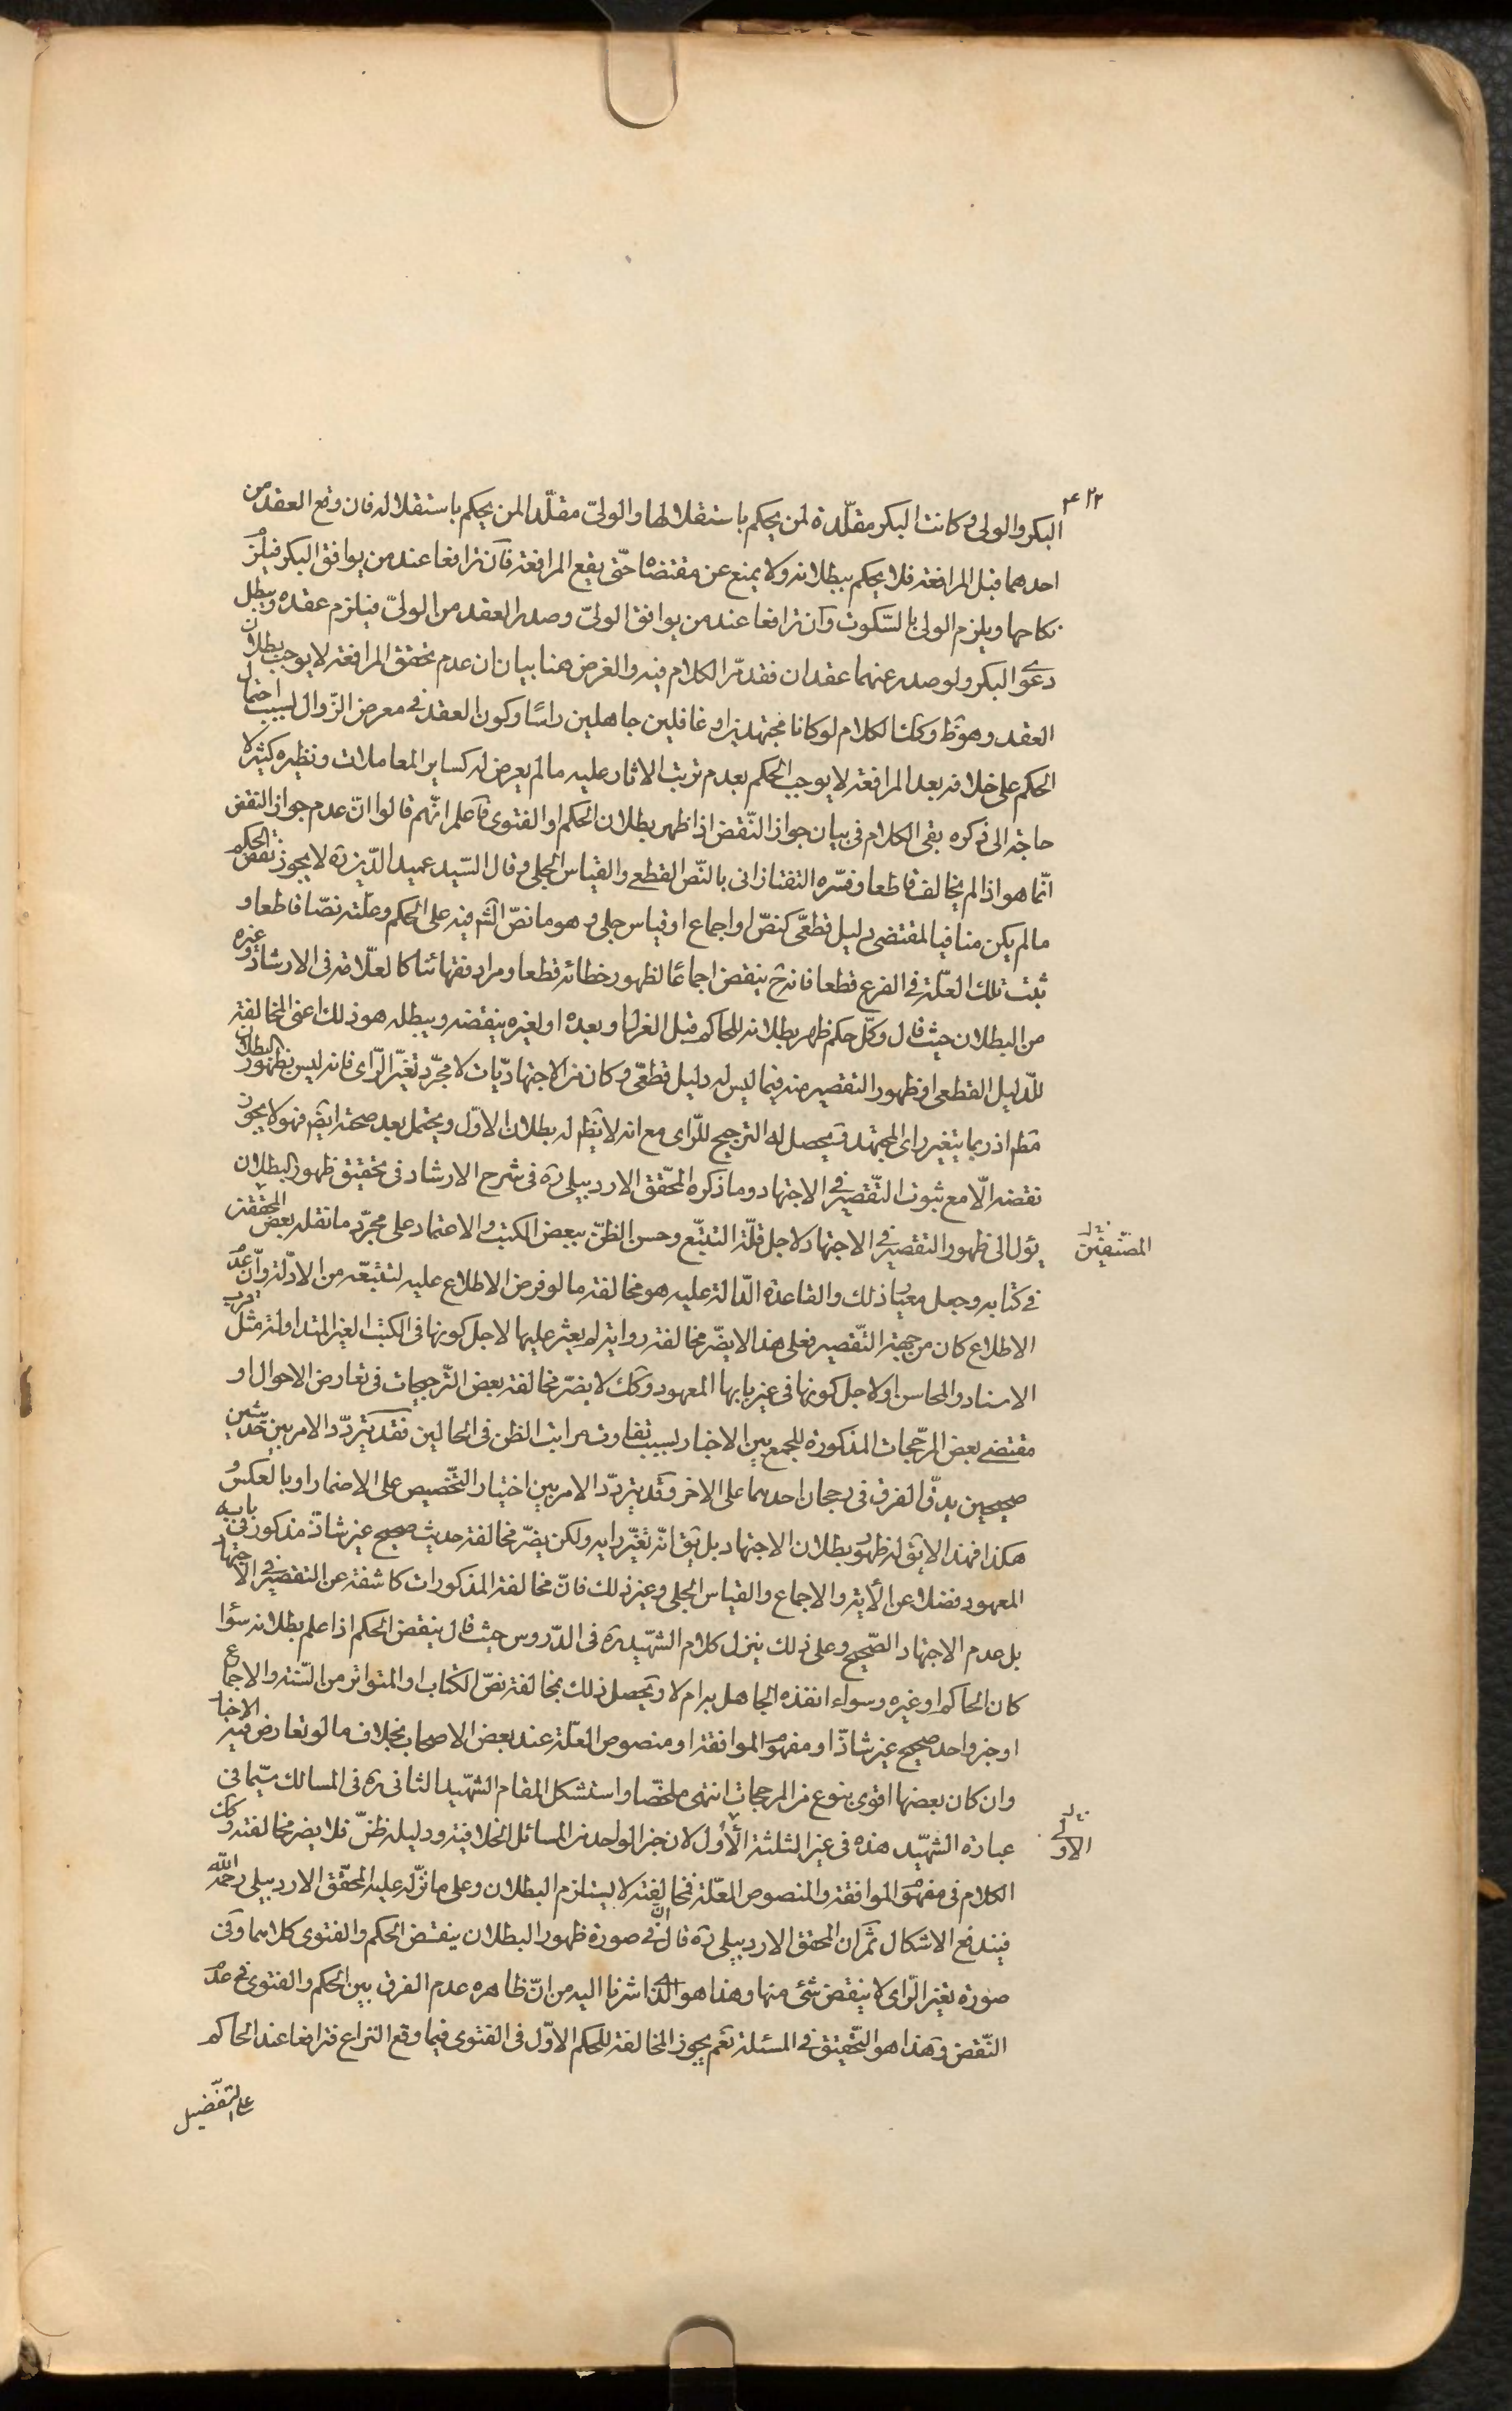 ۴۲۲
البكر والولى و كانت البكر مقلّدة لمن يحكم باستقلالها والولىّ مقلّدا لمن يحكم باستقلاله فان وقع العقد من
احدهما قبل المرافعة فلا يحكم ببطلانه ولا يمنع عن مقتضاه حتّى يقع المرافعة فان ترافعا عند من يوافق البكر فيلزم
نكاحها ويلزم الولى بالسّكوت وان ترافعا عند من يوافق الولىّ وصدر العقد من الولىّ فيلزم عقده ويبطل
دعوى البكر ولو صدر عنهما عقدان فقد مّر الكلام فيه والغرض هنا بيان ان عدم تحقق المرافعة لا يوجب بطلان
العقد وهو ظ وكك الكلام لو كانا مجتهدين او غافلين جاهلين راسًا وكون العقد فى معرض الزّوال لسبب احتمال
الحكم على خلافه بعد المرافعة لا يوجب الحكم بعدم ترتب الاثار عليه مالم يعرض له كساير المعاملات ونظيره كثير لا
حاجة الى ذكره بقى الكلام فى بيان جواز النّقض اذا ظهر بطلان الحكم او الفتوى فاعلم انّهم قالوا انّ عدم جواز النقض
انّما هو اذا لم يخالف قاطعا وفسّره التفتازانى بالنّص القطعى والقياس الجلى وقال السّيد عميد الدّين ره لا يجوز نقض الحكم
مالم يكن منافيا لمقتضى دليل قطعىّ كنصّ او اجماع او قياس جلى و هو ما نصّ الشّ فيه على الحكم وعلّته نصّا قاطعا و
ثبت تلك العلّة فى الفرع قطعا فانه ح ينقض اجماعًا لظهور خطائه قطعا ومراد فقهائنا كالعلّامة فى الارشاد وغيره
من البطلان حيث قال وكلّ حكم ظهر بطلانه للحاكم قبل العزل او بعده او لغيره ينقضه ويبطله هو ذلك اعنى المخالفة
للدّليل القطعى او ظهور التقصير منه فيما ليس له دليل قطعىّ وكان من الاجتهاديّات لا مجرّد تغيّر الرّاى فانه ليس بظهور البطلان
قطع اذ ربما يتغير راى المجتهد ويحصل له الترجيح للرّاى مع انه لا يظهر له بطلان الاوّل ويحتمل بعد صحته ايضً فهو لا يجوز
نقضه الّا مع ثبوت التّقصير فى الاجتهاد وما ذكره المحّقق الاردبيلى ره فى شرح الارشاد فى تحقيق ظهور البطلان
يؤل الى ظهور التقصير فى الاجتهاد لاجل قلّة التتبّع وحسن الظنّ ببعض الكتب والاعتماد على مجرّد ما نقله بعض المحققين
المصنّفين
فى كتابه وجعل معيار ذلك والقاعدة الدّالة عليه هو مخالفته ما لو فرض الاطلاع عليه لتتبّعه من الادلّة وانّ عدم
الاطلاع كان من جهة التّقصير فعلى هذا لا يضّر مخالفة رواية لم يعثر عليها لاجل كونها فى الكتب الغير المتداولة مثل قرب
الاسناد والمحاسن او لاجل كونها فى غير بابها المعهود وكك لا يضرّ مخالفة بعض التّرجيحات فى تعارض الاحوال او
مقتضى بعض المرّجحات المذكورة للجمع بين الاخبار لسبب تفاوت مراتب الظن فى الحالين فقد يتردّد الامر بين حديثين
صحيحين يدقّ الفرق فى رجحان احدهما على الاخر وقد يتردّد الامر بين اختيار التّخصيص على الاضمار او بالعكس و
هكذا فهذا لا يق له ظهور بطلان الاجتهاد بل يق انّه تغيّر رايه ولكن يضّر مخالفة حديث صحيح غير شاذّ مذكور فى بابه
المعهود فضلا عن الأية والاجماع والقياس الجلى وغير ذلك فانّ مخالفة المذكورات كاشفة عن التقصير فى الاجتهاد
بل عدم الاجتهاد الصّحيح وعلى ذلك ينزل كلام الشهّيد ره فى الدّروس حيث قال ينقض الحكم اذا علم بطلانه سؤا
كان الحاكم او غيره وسواء انفذه الجاهل به ام لا ويحصل ذلك بمخالفة نصّ الكتاب او المتواتر من السّنة والاجماع
او خبر واحد صحيح غير شاذّ او مفهوم الموافقة او منصوص العلّة عند بعض الاصحاب بخلاف ما لو تعارض فيه الاخبار
وان كان بعضها اقوى بنوع من المرجحات انتهى ملخّصا واستشكل المقام الشهّيد الثانى ره فى المسالك سيّما فى
عبارة الشهّيد هذه فى غير الثلثة الأُوَل لان خبر الواحد من المسائل الخلافية ودليله ظنّى فلا يضر مخالفته وكك
الاولى
الكلام فى مفهوم الموافقة والمنصوص العلّة فمخالفته لا يستلزم البطلان وعلى ما نزّله عليه المحّقق الاردبيلى رحمه الله
فيندفع الاشكال ثمّ ان المحقق الاردبيلى ره قال انّ فى صورة ظهور البطلان ينقض الحكم والفتوى كلاهما وفى
صورة تغير الرّاى لا ينقض شئ منها وهذا هو الذى اشرنا اليه من انّ ظاهره عدم الفرق بين الحكم والفتوى فى عدم
النّقض وهذا هو التّحقيق فى المسئلة نعم يجوز المخالفة للحكم الاوّل فى الفتوى فيما وقع النزاع فترافعا عند الحاكم
على التفضيل